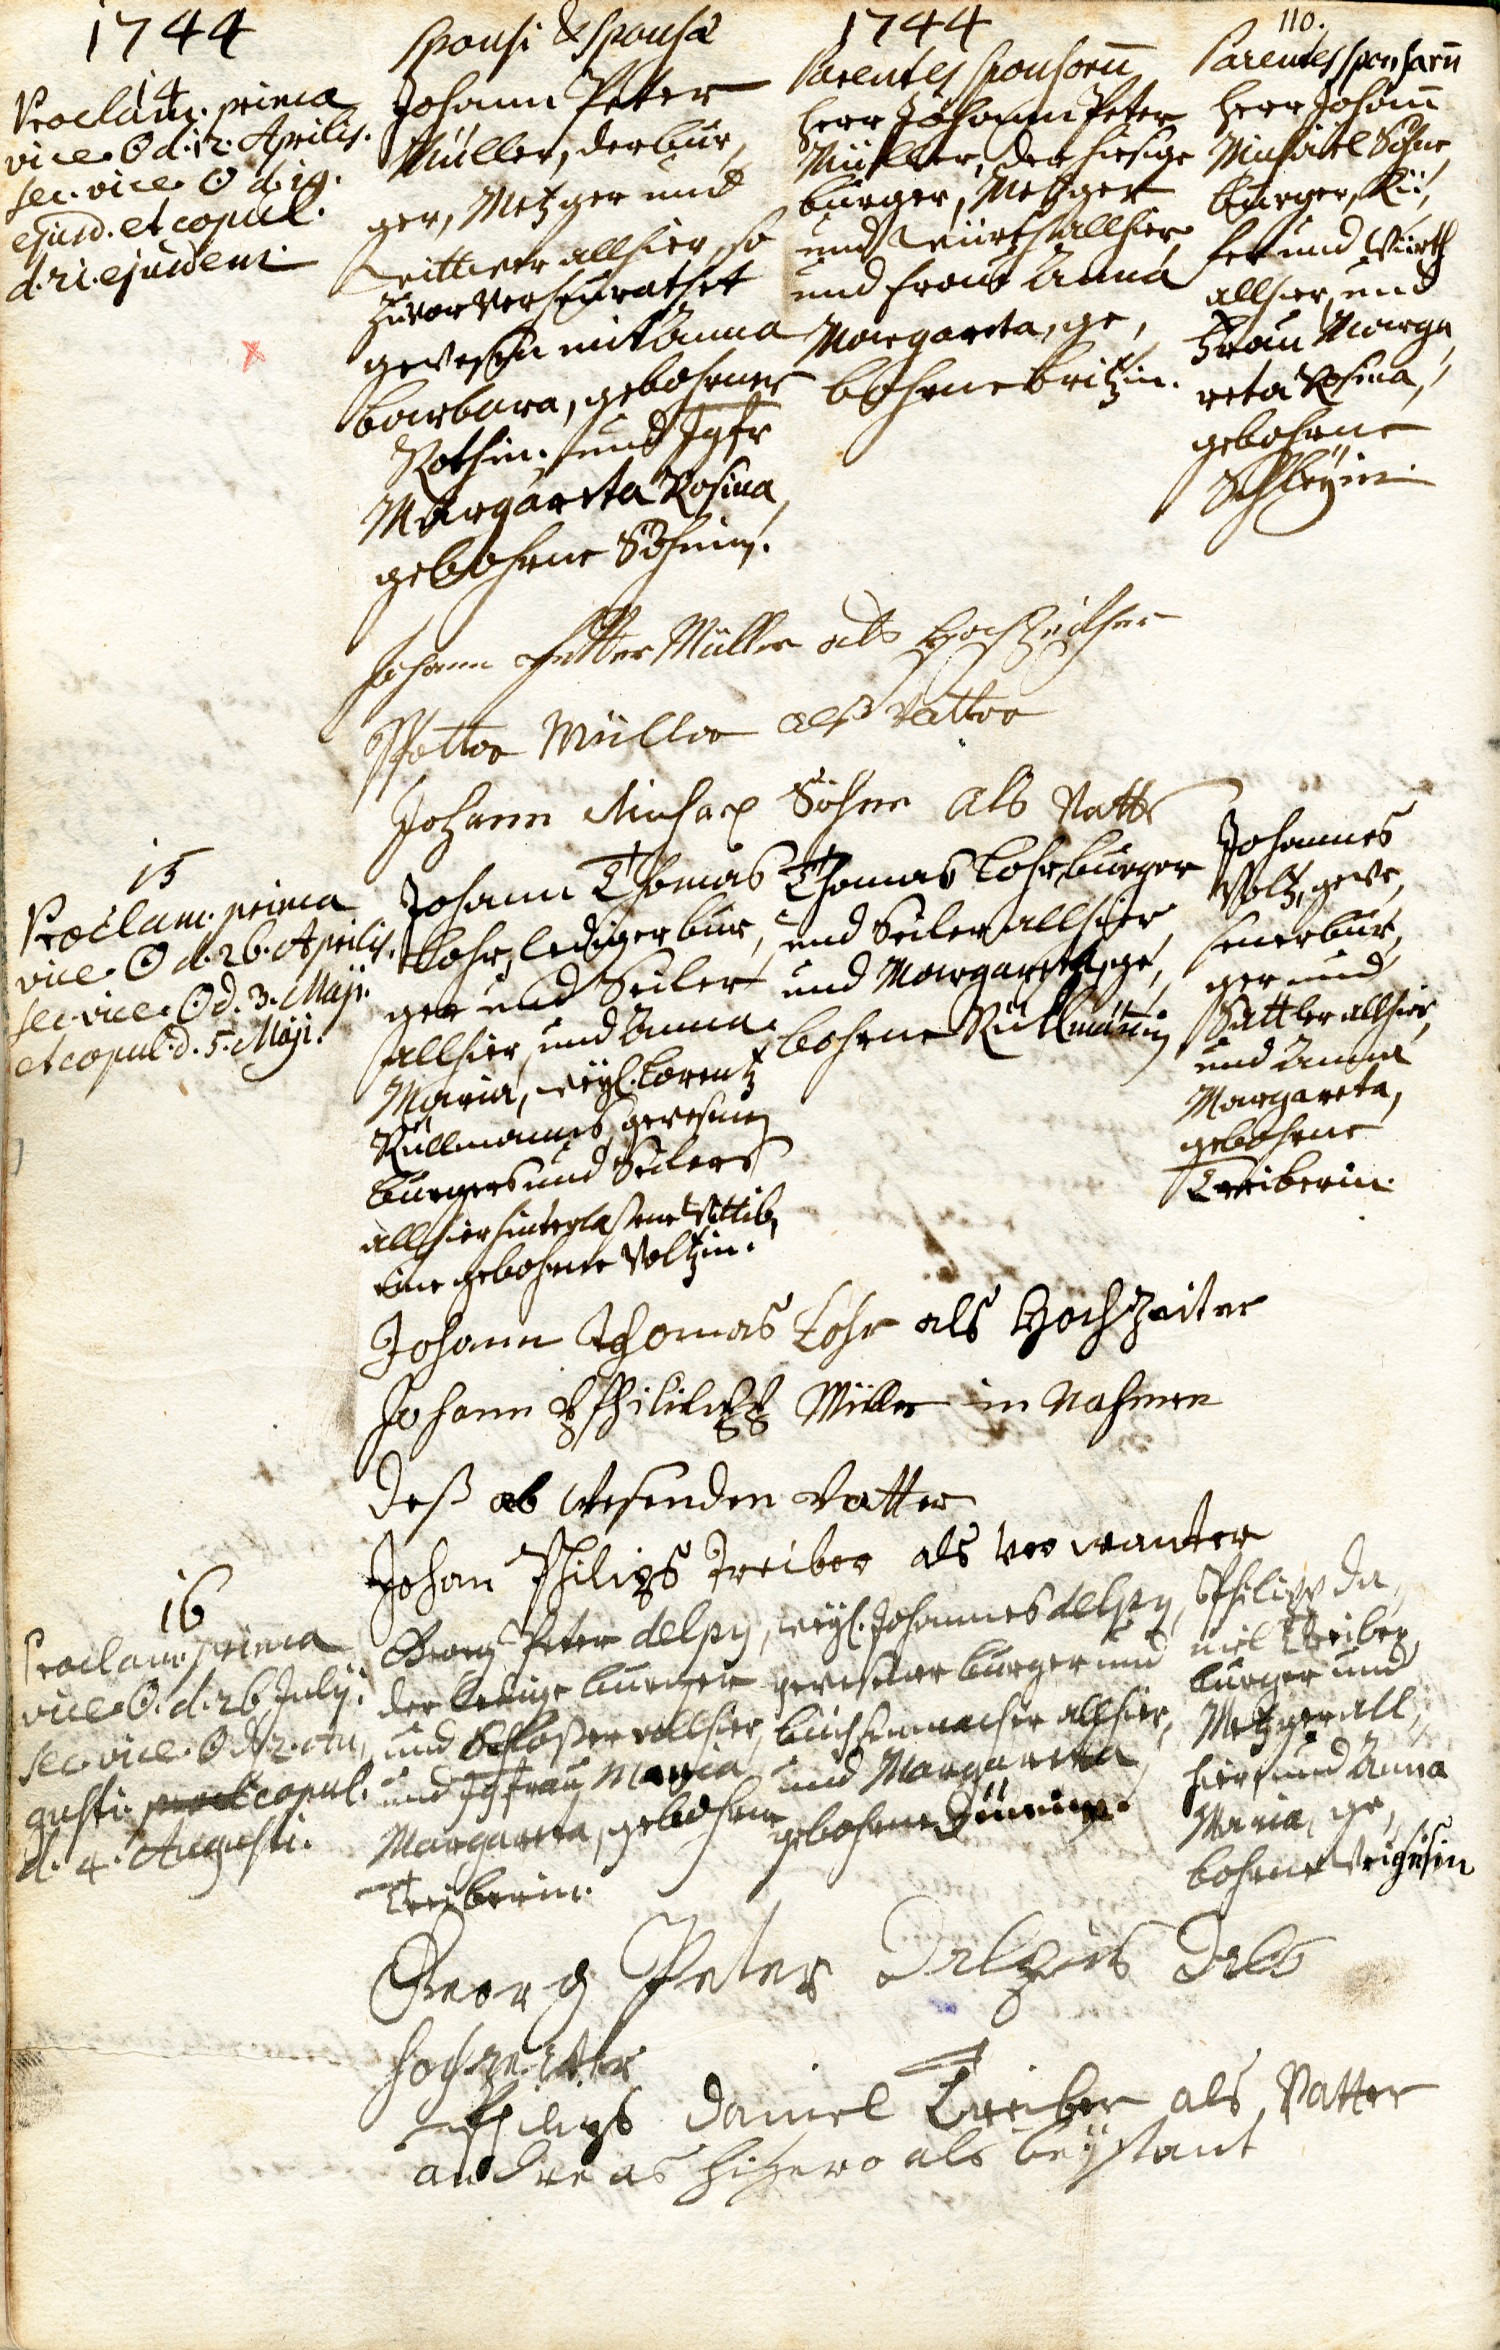 1744
Sponsi & Sponsæ
1744
110.
Parentes sponsorū
Parentes sponsarū
14
Proclam. prima
vice ☉ d. 12. Aprilis.
sec. vice ☉ d. 19.
ejusd. et copul.
d. 21. ejusdem.
Johann Peter
Müller, der bur,
ger, Metzger und
Wittwer allhier, so
zuvor verheurathet
gewesen mit Anna
Barbara, gebohrner
Rothin. und Jgfr
Margareta Rosina,
gebohrne Söhnin.
Herr Johann Peter
Müller, der hiesige
burger, Metzger
und Würth allhier
und Frau Anna
Margareta, ge,
bohrne Britzin.
Herr Johann
Michael Söhne,
burger, Kü,
fer und Würth
allhier, und
Frau Marga,
reta Rosina,
gebohrne
Schleÿin.
Johann Petter Müller als Hochzeither
Petter Müller alß Vatter
Johann Michael Söhne als Vatter
15
Proclam. prima
vice ☉ d. 26. Aprilis.
sec. vice ☉ d. 3. Maji.
et copul. d. 5. Maji.
Johann Thomas
Lohr, lediger bur,
ger und Seiler
allhier, und Anna
Maria, weyl. Lorentz
Rullmannes gewesenen
burgers und Seilers
allhier hinterlaßene Wittib,
eine gebohrne Voltzin.
Thomas Lohr, burger
und Seiler allhier,
und Margareta, ge,
bohrne Rullmännin
Johannes
Voltz, gewe,
sener bur,
ger und
Sattler allhier,
und Anna
Margareta,
gebohrne
Treiberin.
Johann Thomas Lohr als Hochzeiter
Johann Philipps Müller in Nahmen
deß ab wesenden Vatter
Johan Philips Treiber als verwanter
16
Proclam. prima
vice ☉. d. 26 Julij.
sec. vice. ☉ d. 2. Au,
gusti. copul.
d. 4. Augusti.
Georg Peter delpy,
der ledige burger
und Schloßer allhier,
und Jgfrau Maria
Margareta, gebohrne
Treiberin.
weyl. Johannes delpy,
gewesener burger und
büchsenmacher allhier,
und Margareta
gebohrne
Philipp Da,
niel Treiber,
burger und
Metzger all,
hier, und Anna
Maria, ge,
bohrne
Georg Peter Delpus Dalß
Hochzeiter
Philips Daniel Treiber als Vatter
andreas als beÿstant